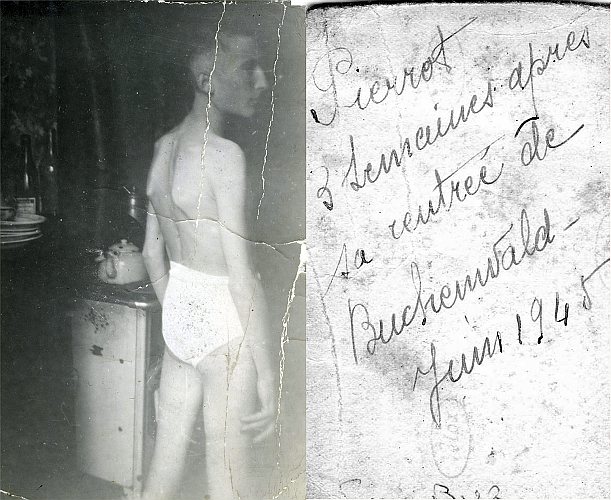 Pierrot
3 semaines après
sa rentrée de
Buchenwald -
Juin 1945